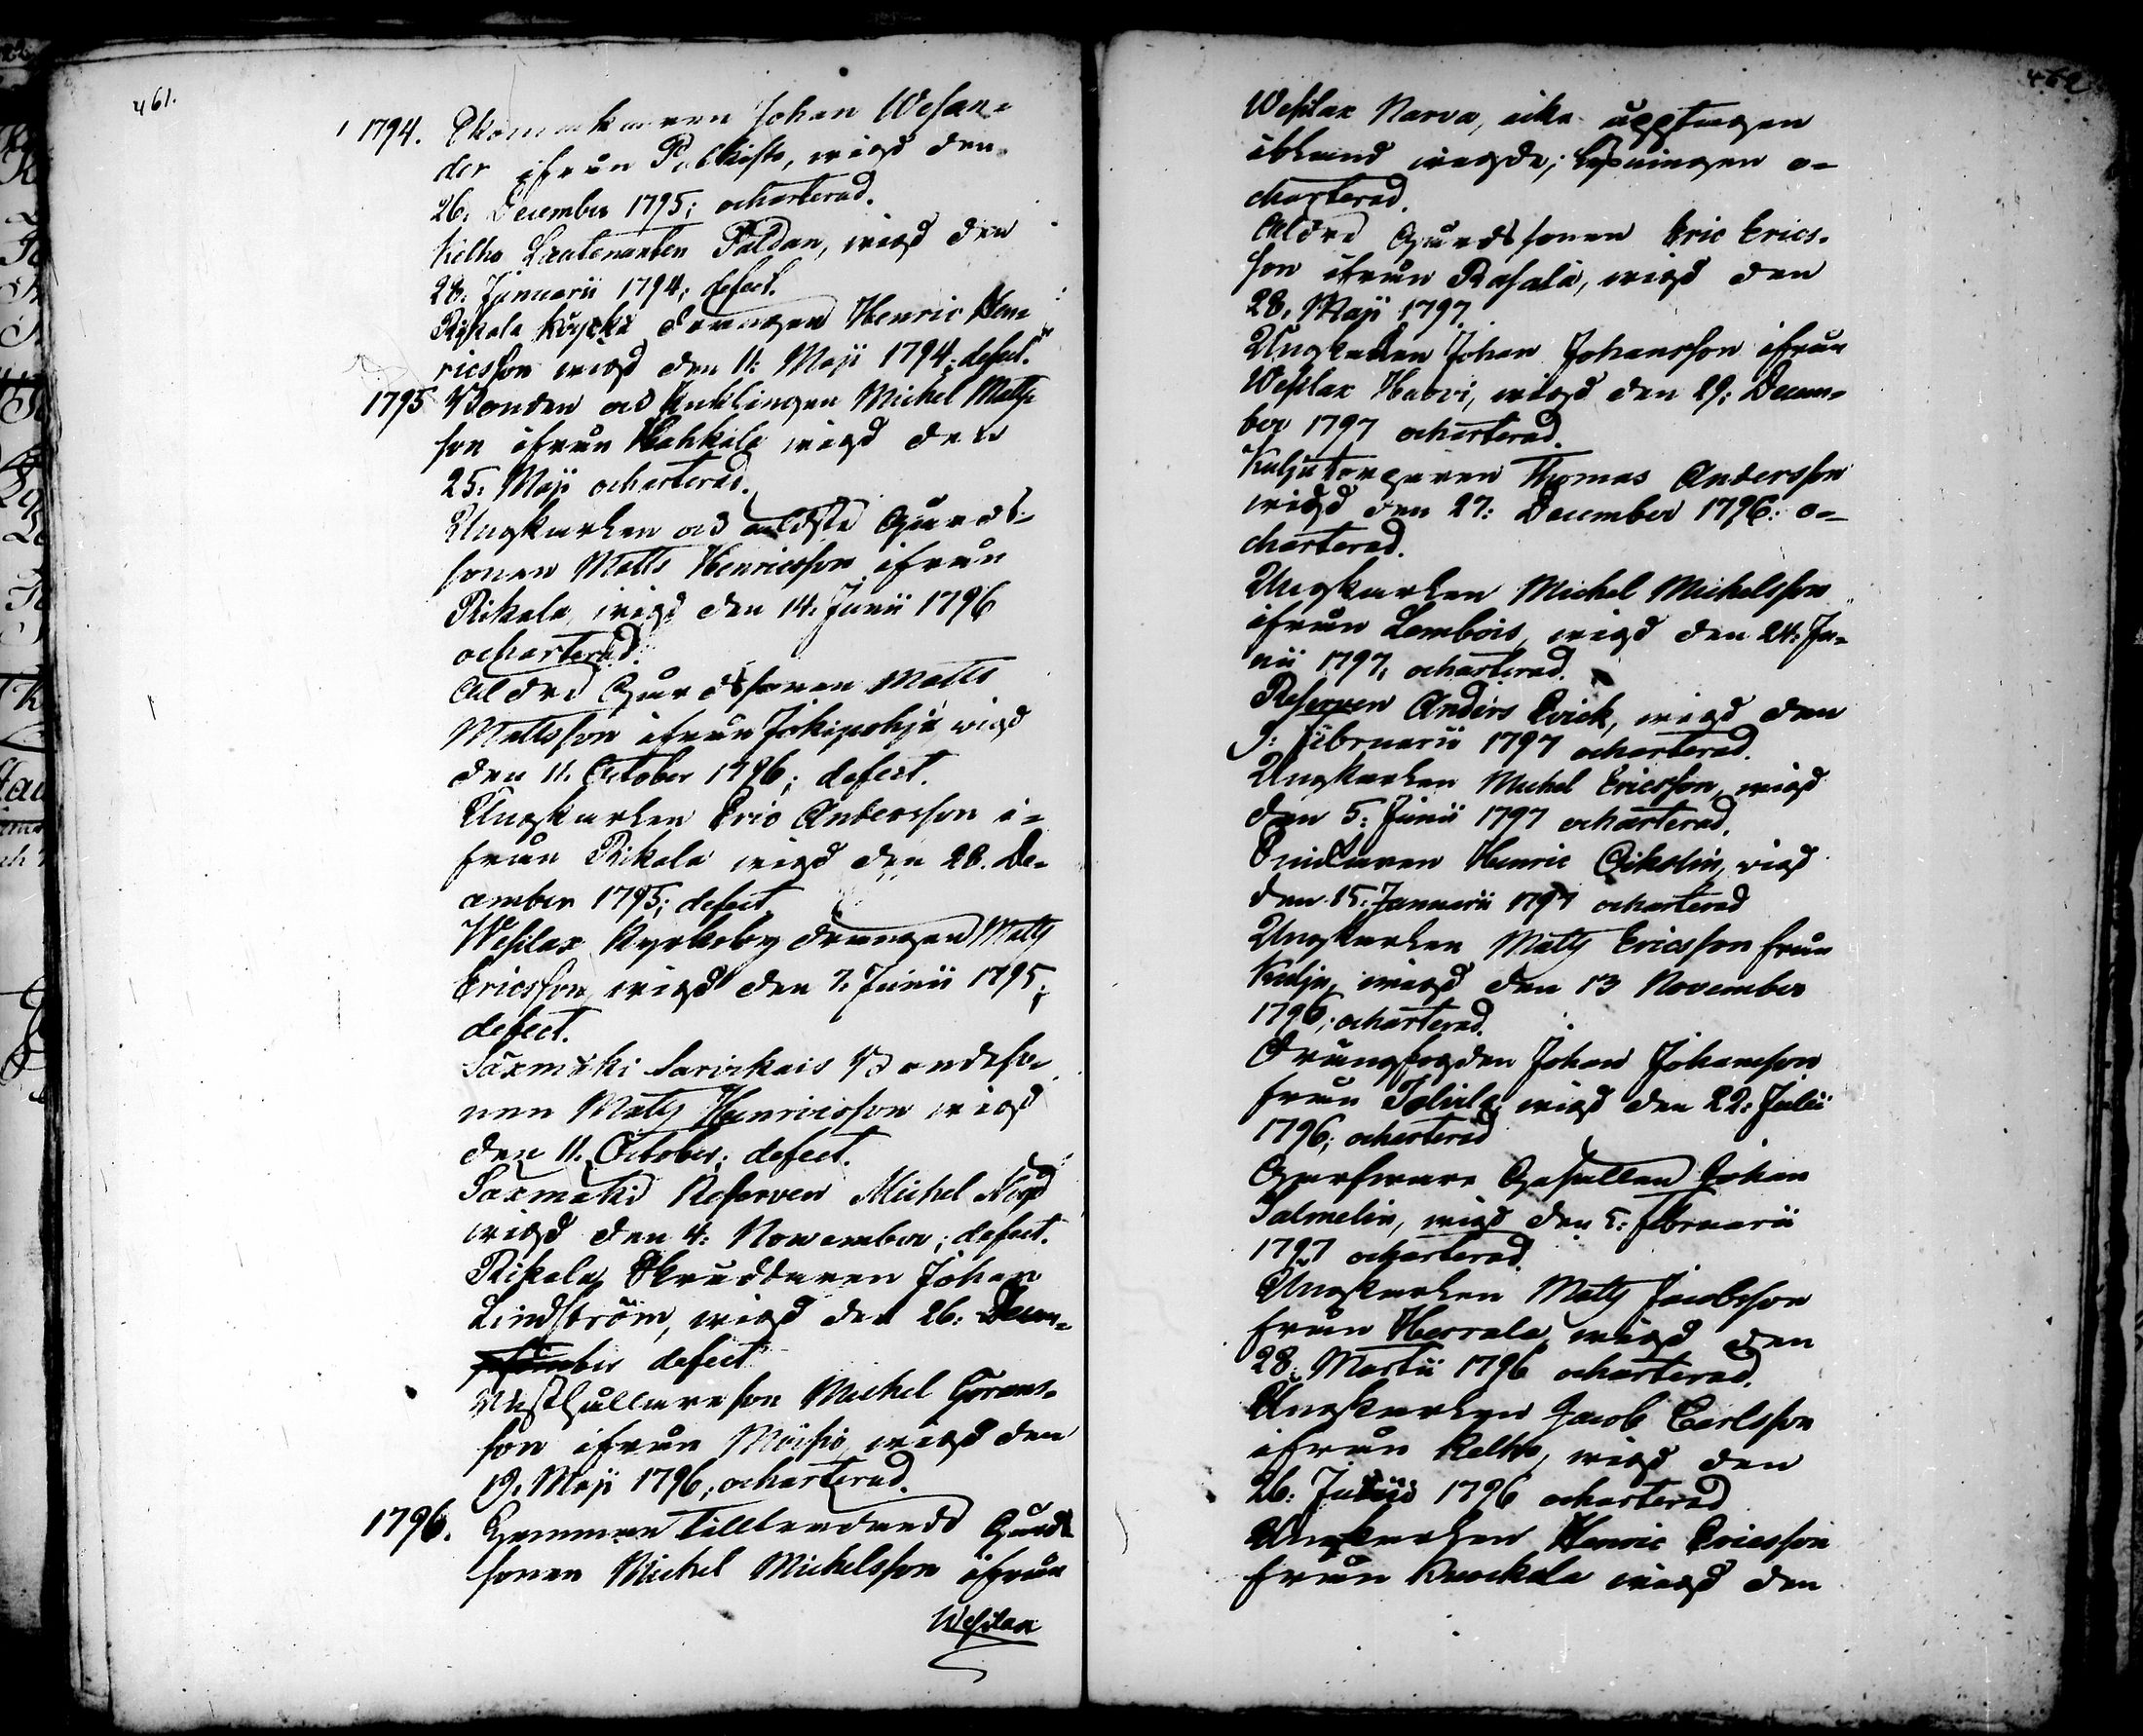 461.
1794. Skomakaren Johan Wesan-
der ifrån Palkista, wigd den
26. December 1795; ocharterad.
Kelho Leutenanten Paldan, wigd den
28. Januarii 1794; defect.
Rikala drängen Henric Hen-
ricsson wigd den 11. Maji 1794; defect.
1795 Bonden och Enklingen Michel Matts
son ifrån Hahkala wigd den
25. Maji ocharterad.
Ungkarlen och äldste Gårds-
sonen Matts Henricsson ifrån
Rikala, wigd den 14. Junii 1796
ocharterad.
Äldre Gårdssonen Matts
Mattsson ifrån Jokipohja wigd
den 11. October 1796; defect.
Ungkarlen Eric Andersson i-
från Rikala wigd den 28. De-
cember 1795; defect
Wesilax Kyrkoby drängen Matts
Ericsson, wigd den 7. Junii 1795;
defect.
Saxmäki Sarvikais Bondeso-
nen Matts Henricsson wigd
den 11. October; defect.
Saxmäki Reserven Michel
wigd den 4. November; defect.
Rikala Skräddaren Johan
Lindström, wigd den 26. Decem-
ber defect
Rusthållareson Michel Görans-
son ifrån Moisio, wigd den
19. Maji 1796, ocharterad.
1796. Hemman tillträdande Gårds
sonen Michel Michelsson ifrån
Wesilax
462
Wesilax Narva, icke upptagen
ibland wigde; Lysningen o-
charterad.
Äldre Gårdssonen Eric Erics-
son ifrån Rasala, wigd den
28. Maji 1797.
Ungkarlen Johan Johansson ifrån
Wesilax Hurvi, wigd den 29. Decem-
ber 1797 ocharterad.
Kuljutorparen Thomas Andersson
wigd den 27: December 1796: o-
charterad.
Ungkarlen Michel Michelsson
ifrån Lembois, wigd den 24. Ju-
nii 1797, ocharterad.
Reserven Anders Qvick, wigd den
9: Februarii 1797 ocharterad.
Ungkarlen Michel Ericsson, wigd
den 5: Junii 1797 ocharterad.
Henric wigd
den 15. Januarii 1797 ocharterad
Ungkarlen Matts Ericsson från
Kulju, wigd den 13 November
1796; ocharterad.
Drängfogden Johan Johansson
från Tolvila, wigd den 22: Julii
1796; ocharterad
Garfware Gesällen Johan
Salmelin, wigd den 5: Februarii
1797 ocharterad.
Ungkarlen Matts Jacobsson
från Herrala, wigd den
28. Martii 1796 ocharterad.
Ungkarlen Jacob Carlsson
ifrån Kelho, wigd den
26: 1796 ocharterad
Ungkarlen Henric Ericsson
från Kuockala wigd den